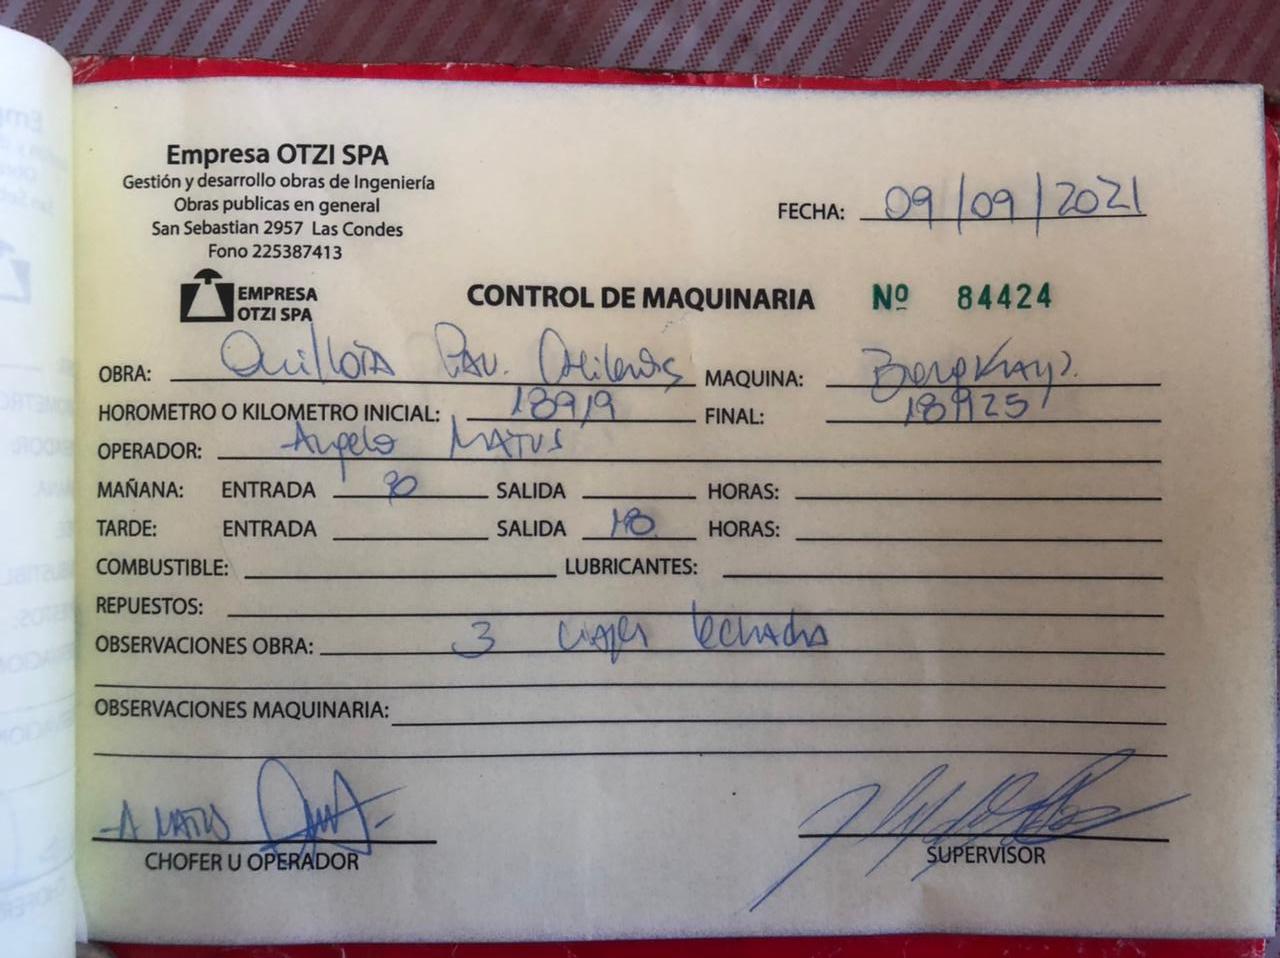 Empresa OTZI SPA
Gestión y desarrollo obras de Ingeniería
Obras publicas en general
San Sebastian 2957 Las Condes
Fono 225387413
FECHA: 09/09/2021
EMPRESA
OTZI SPA
CONTROL DE MAQUINARIA Nº 84424
OBRA: Quillota Pav. MAQUINA:
HOROMETRO O KILOMETRO INICIAL: 18919 FINAL: 18925
OPERADOR: Angelo MATUS
MAÑANA: ENTRADA SALIDA HORAS:
TARDE: ENTRADA SALIDA 18 HORAS:
COMBUSTIBLE: LUBRICANTES:
REPUESTOS:
OBSERVACIONES OBRA: 3 viajes lechada
OBSERVACIONES MAQUINARIA:
A MATUS
CHOFER U OPERADOR
SUPERVISOR